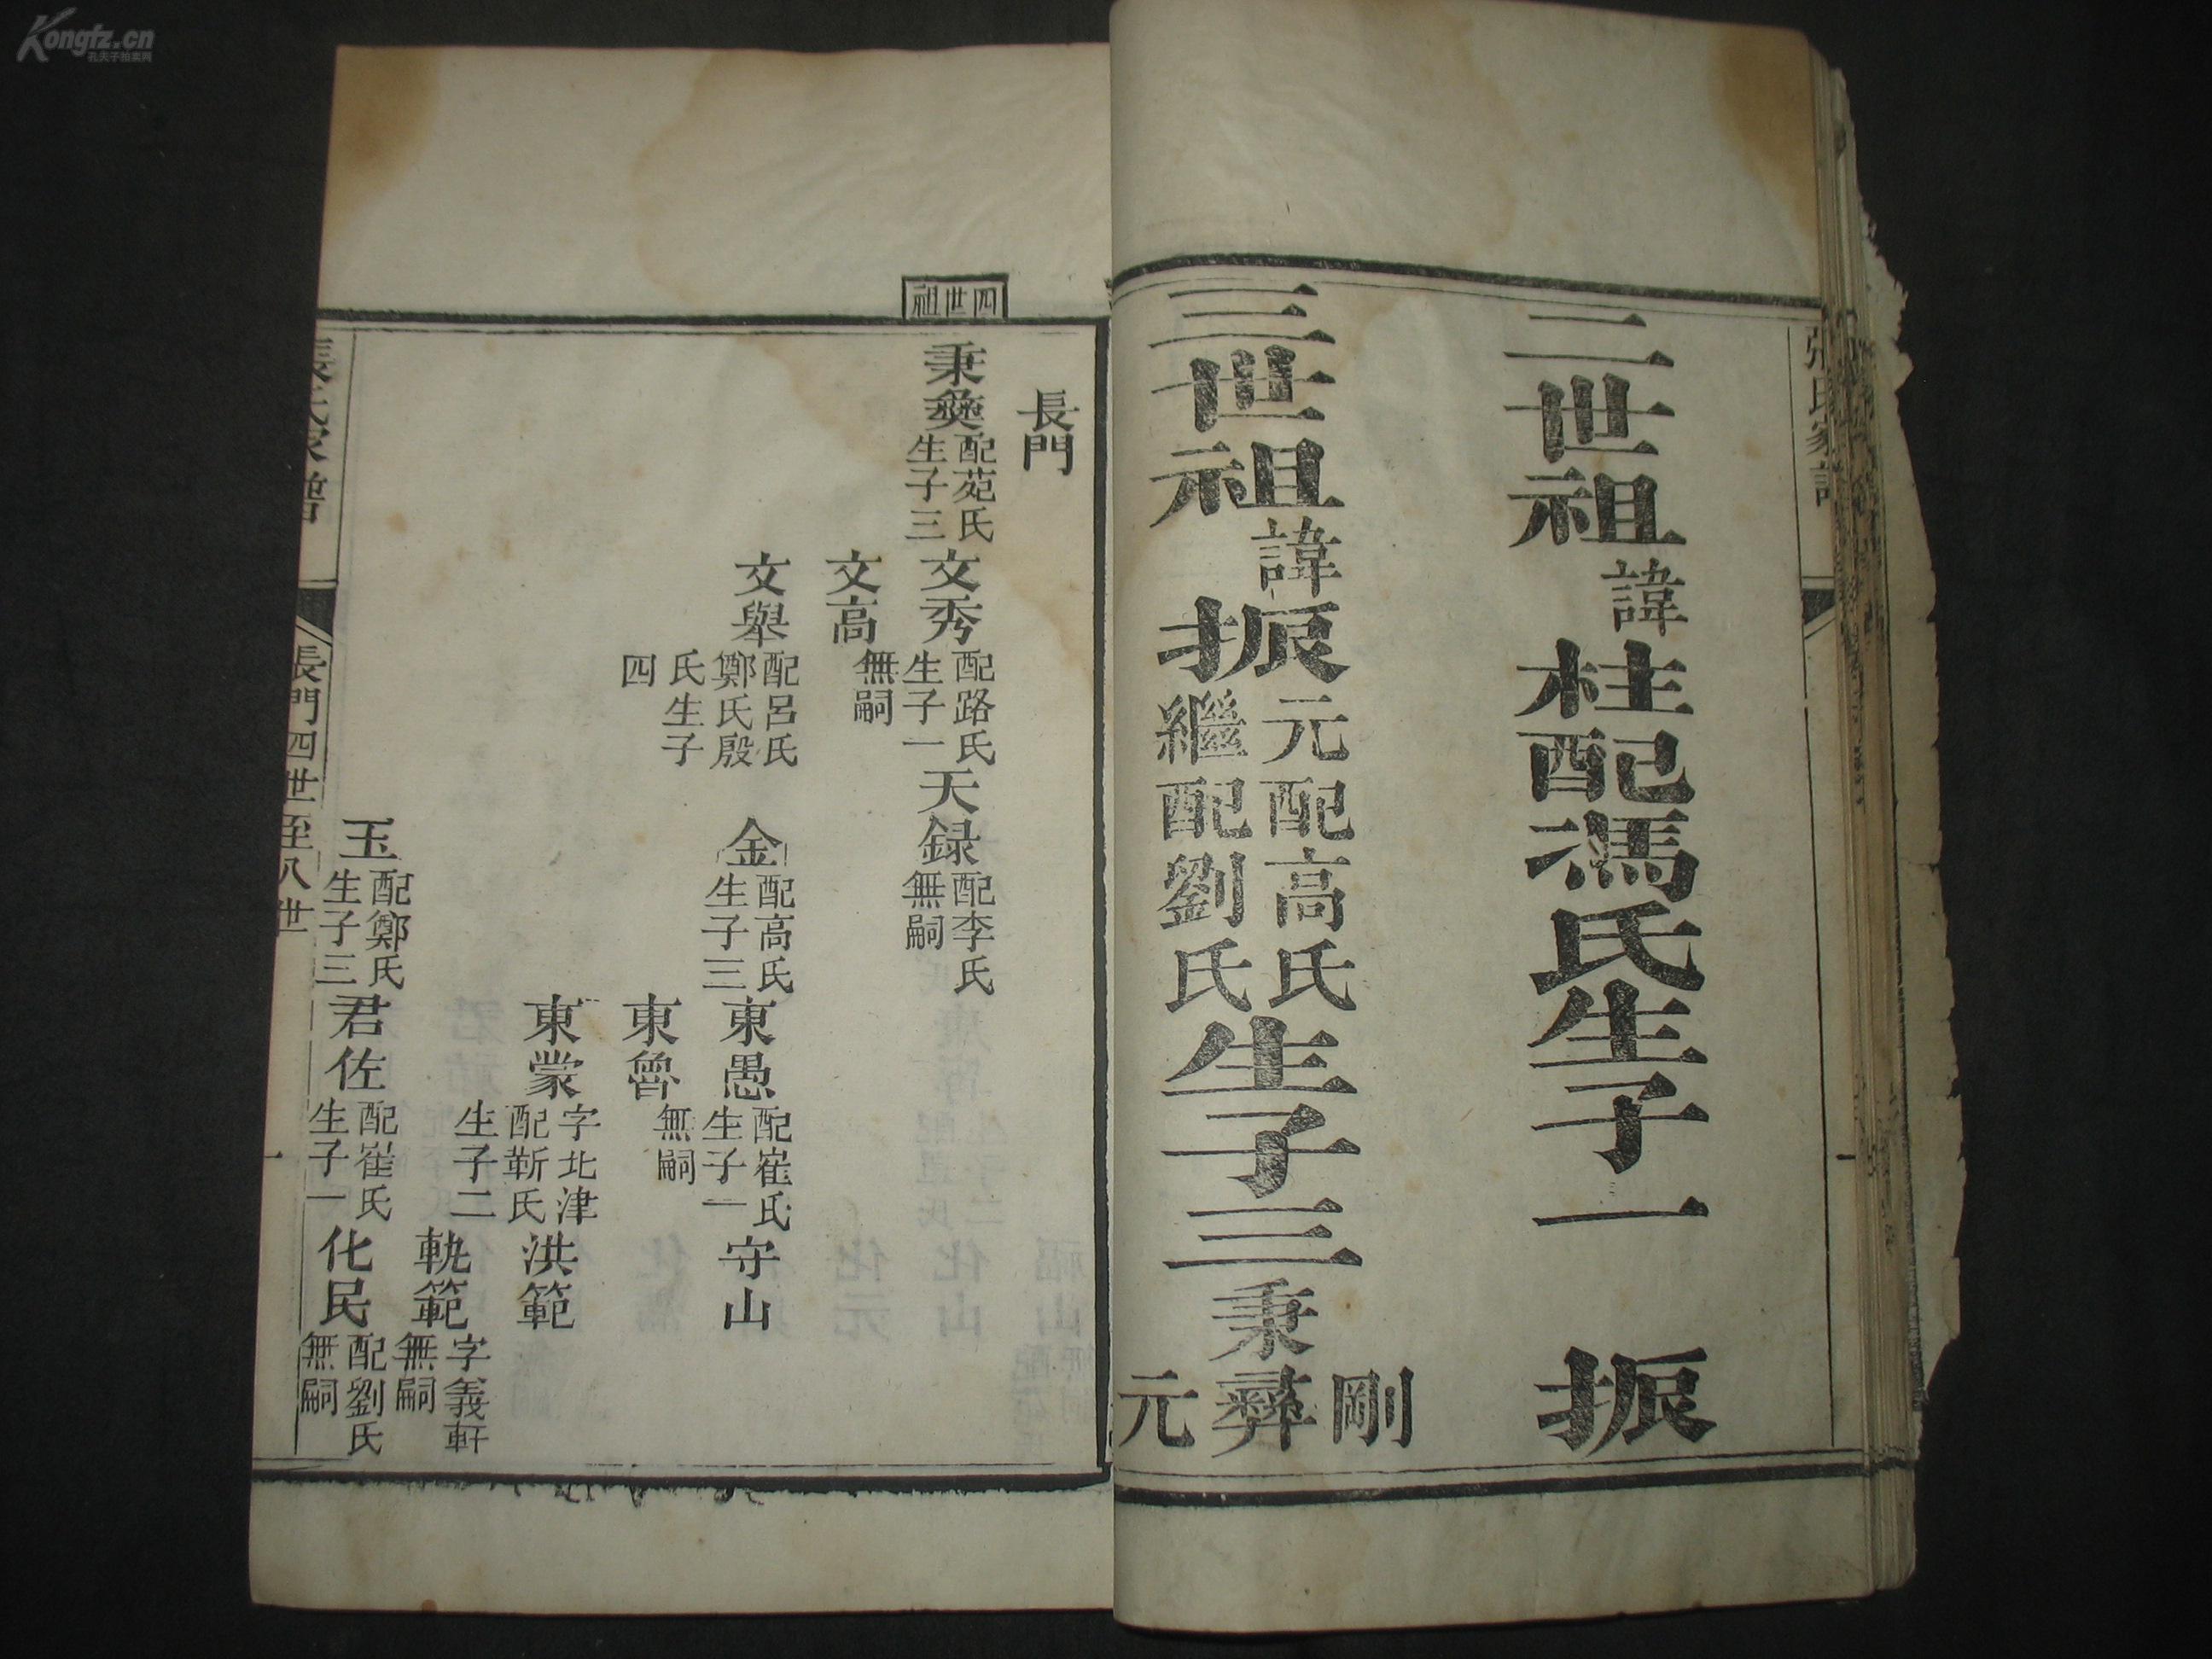 Kongfz.cn
孔夫子拍卖网
張氏家譜
二世祖諱柱配馮氏生子一 振
三世祖諱振元配高氏繼配劉氏生子三
剛
秉彝
元
四世祖
長門
秉彝配苑氏生子三
文秀配路氏生子一
天録配李氏無嗣
文高無嗣
文舉配呂氏鄭氏殷氏生子四
金配高氏生子三
東愚配崔氏生子一
守山
東魯無嗣
東蒙字北津配靳氏生子二
洪範
軌範字義軒無嗣
玉配鄭氏生子三
君佐配崔氏生子一
化民配劉氏無嗣
張氏家譜
長門四世至八世
一